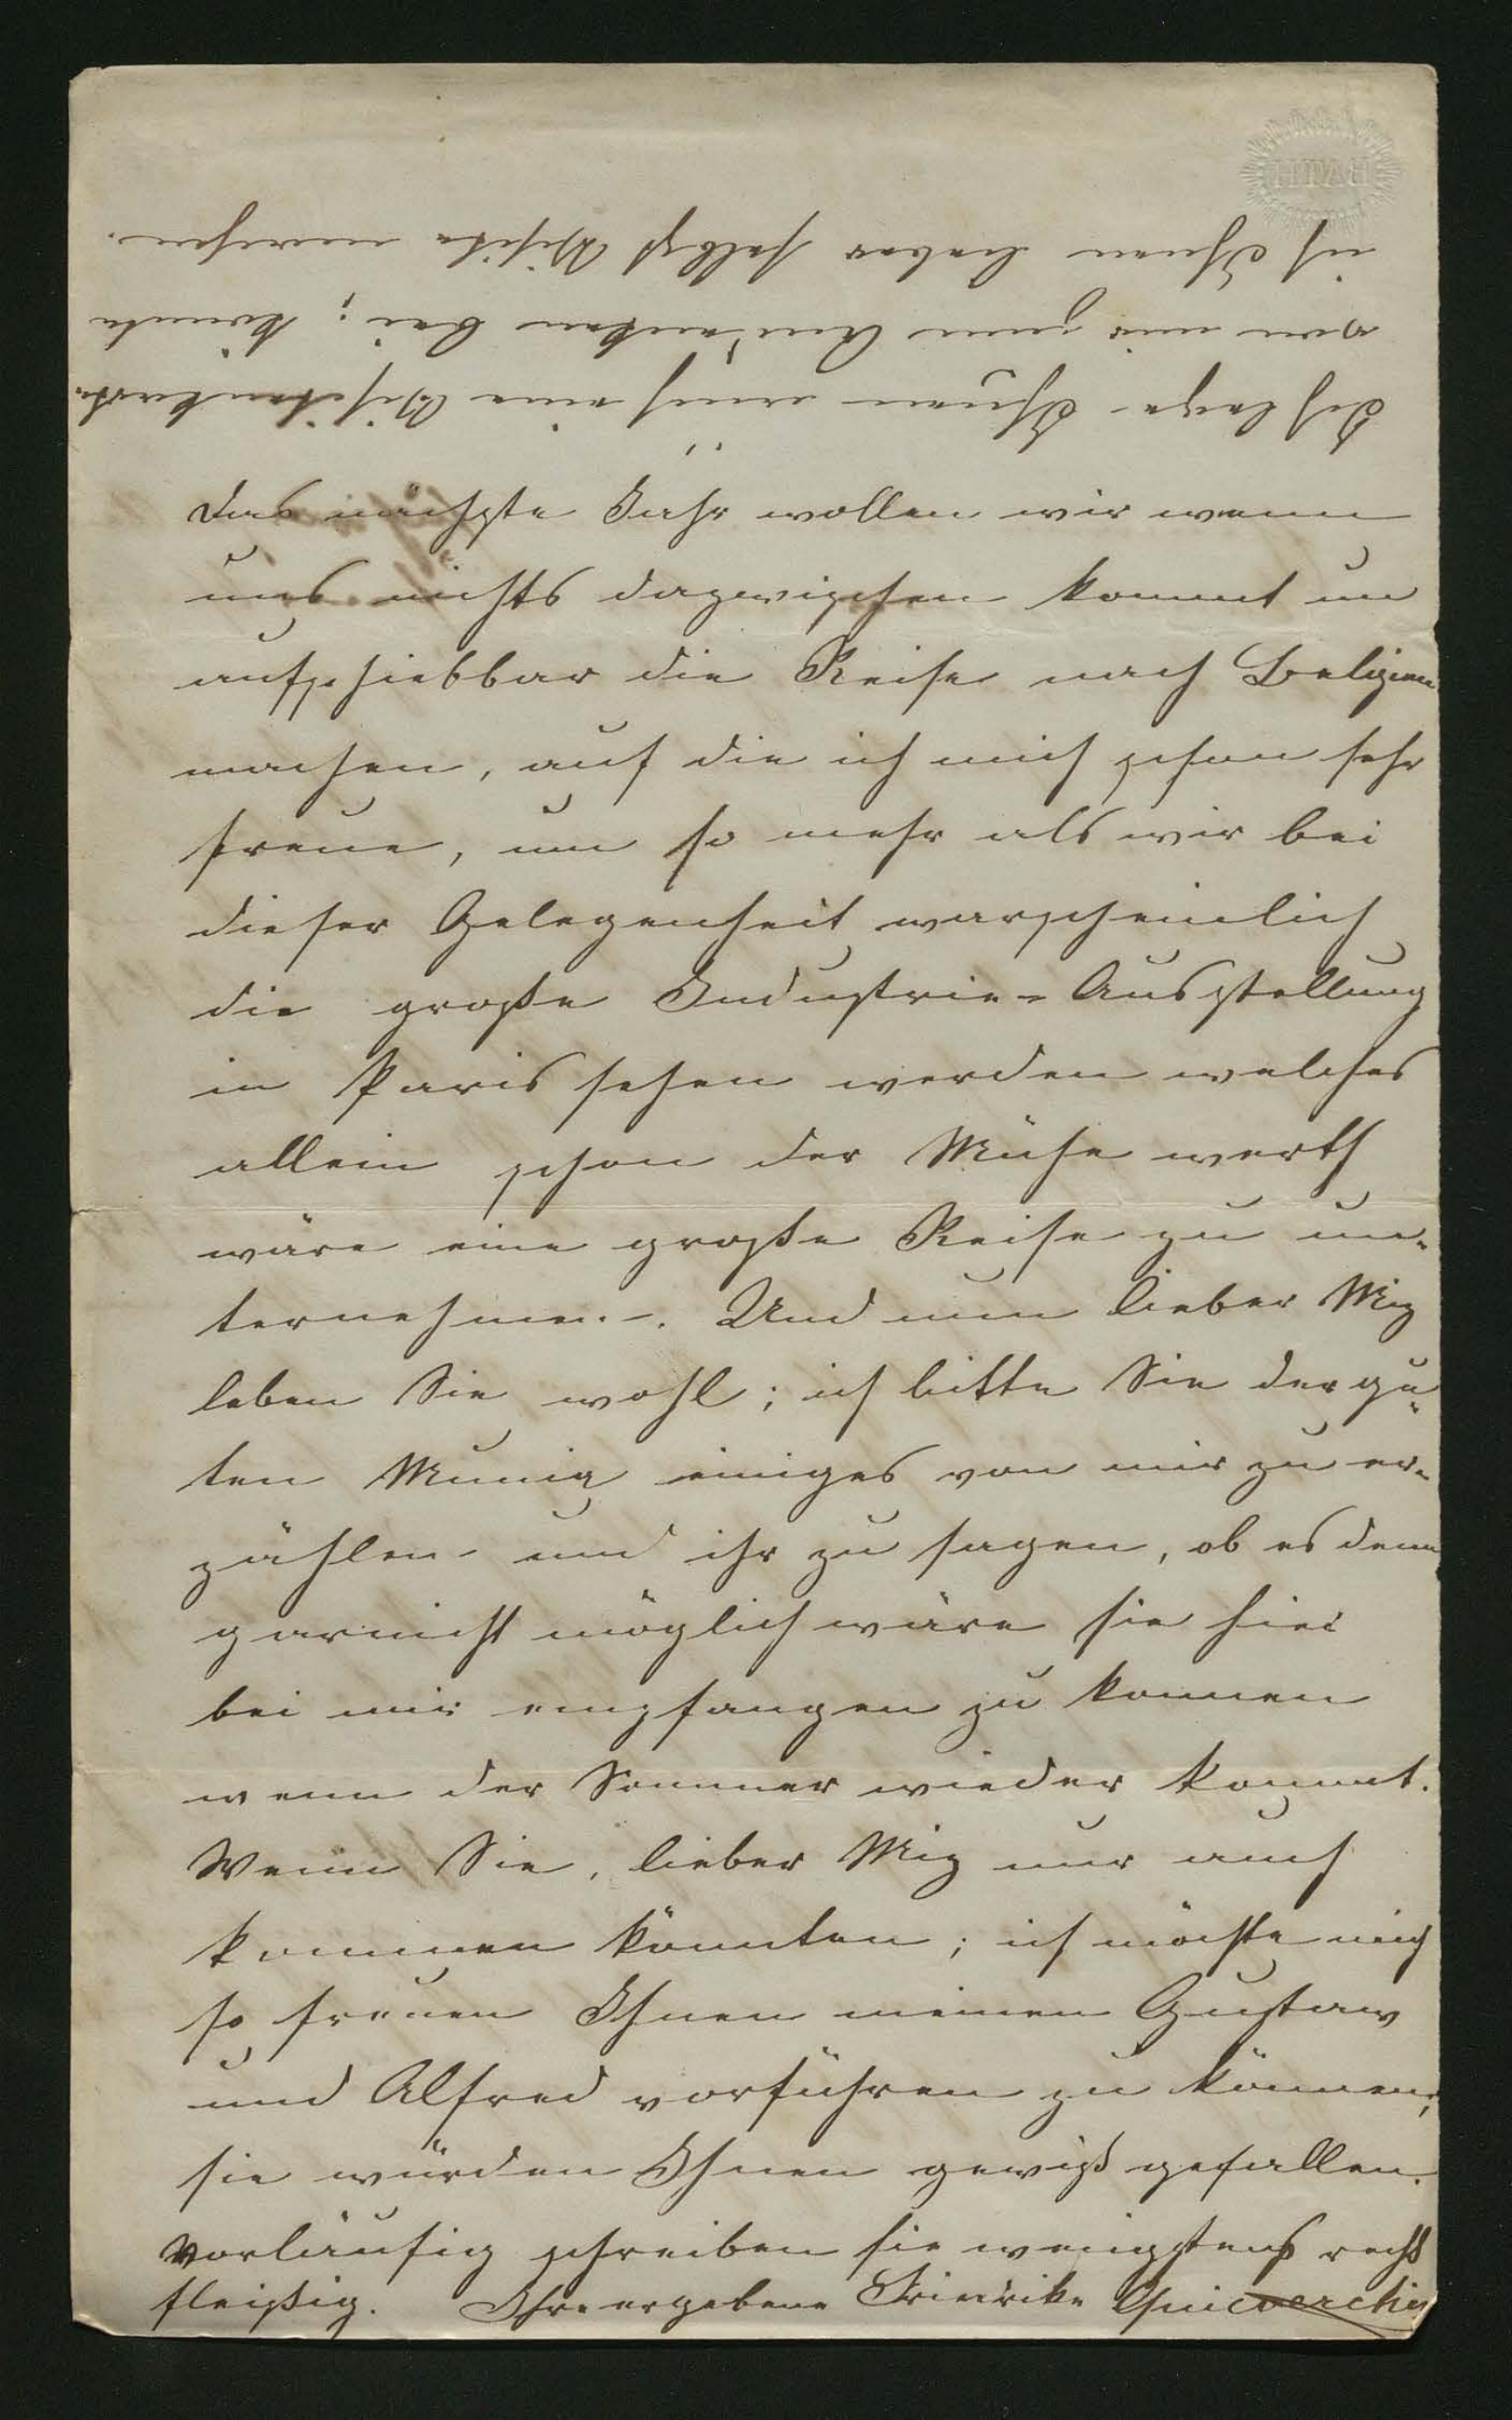 Das nächste Jahr wollen wir wenn
uns nichts dazwischen kommt un
aufschiebbar die Reise nach Belgien
machen, auf die ich mich schon sehr
freue, um so mehr als wir bei
dieser Gelegenheit warscheinlich
die große Industrie-Ausstellung
in Paris sehen werden welches
allein schon der Mühe werth
wäre eine große Reise zu un-
ternehmen. Und nun lieber Mig
leben Sie wohl; ich bitte Sie der gu-
ten einiges von mir zu er-
zählen und ihr zu sagen, ob es denn
garnicht möglich wäre sie hier
bei mir empfangen zu konnen
wenn der Sommer wieder kommt.
Wenn Sie, lieber Mig nur auch
kommen könnten; ich möchte mich
so freuen Ihnen meinen Gustaw
und Alfred vorführen zu können;
sie würden Ihnen gewiß gefallen.
Vorläufig schreiben sie wenigstens recht
fleißig. Ihre ergebene Friedrike
Ich lege Ihnen auch eine Visitenkarte
von mir zum Andenken bei; könnte
ich Ihnen lieber selbst Visite machen.
BATH